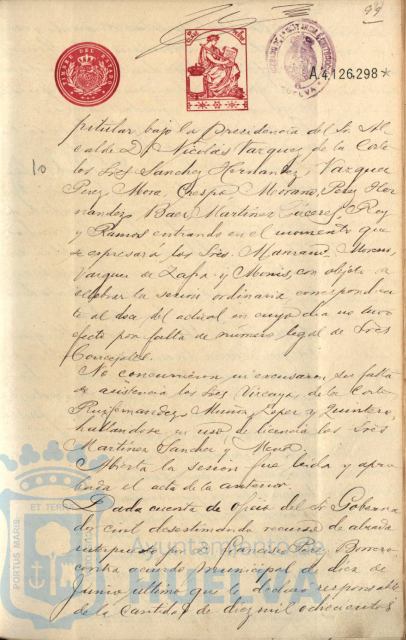 99
TIMBRE DEL ESTADO
A4,126,298*
HUELVA
10
pitular bajo la Presidencia del Sr. Al
calde D. Nicolás Vazquez de la Corte
los Sres Sanchez Hernandez, Vazquez
Perez, Mora, Crespo, Morano, Perez Her
nandez, Baez, Martinez, Rey
y Ramos entrando en el momento que
se expresara los Sres. Manzano, Moreno,
Vazquez de Zafra y Monis, con objeto de
celebrar la sesion ordinaria correspondien
te al dia del actual en cuyo dia no tuvo
efecto por falta de número legal de Sres
Concejales.
No concurrieron ni excusaron su falta
de asistencia los Sres Vizcaya, de la Corte
Ruifernandez, Muñoz, Lopez y Quintero,
hallandose en uso de licencia los Sres
Martinez Sanchez y
Abierta la sesion fue leida y apro
bada el acta de la anterior.
Dada cuenta de oficio del Sr Goberna
dor civil desestimando recurso de alzada
interpuesto por D. Francisco Borrero
contra acuerdo municipal de diez de
Junio ultimo que le declaró responsable
de la cantidad de diez mil ochocientos
PORTUS MARIS ET TERRAE
Ayuntamiento de
HUELVA